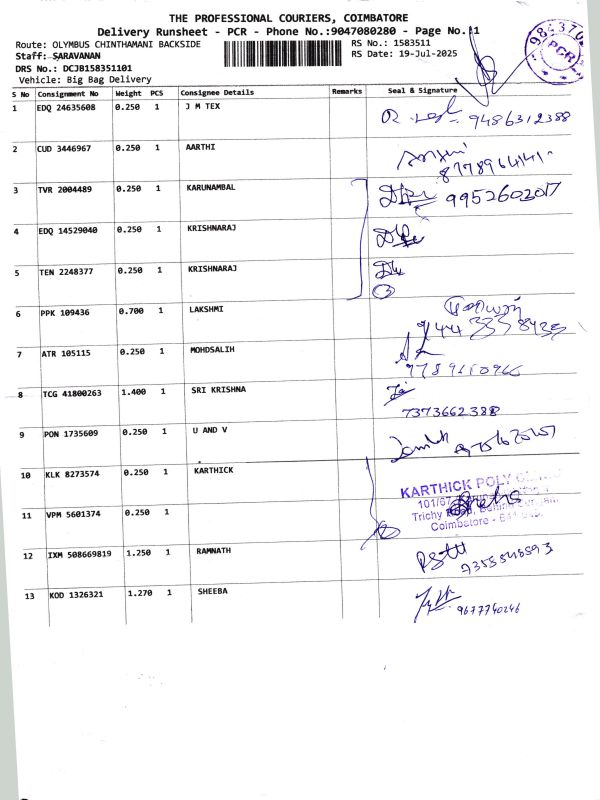 THE PROFESSIONAL COURIERS, COIMBATORE
Delivery Runsheet - PCR - Phone No.:9047080280 - Page No.:1
Route: OLYMBUS CHINTHAMANI BACKSIDE
RS No.: 1583511
Staff: SARAVANAN
RS Date: 19-Jul-2025
DRS No.: DCJB158351101
Vehicle: Big Bag Delivery
PCR
S No Consignment No Weight PCS Consignee Details Remarks Seal & Signature
1 EDQ 24635608 0.250 1 J M TEX 9486312388
2 CUD 3446967 0.250 1 AARTHI
3 TVR 2004489 0.250 1 KARUNAMBAL 9952602017
4 EDQ 14529040 0.250 1 KRISHNARAJ
5 TEN 2248377 0.250 1 KRISHNARAJ
6 PPK 109436 0.700 1 LAKSHMI
7 ATR 105115 0.250 1 MOHDSALIH
8 TCG 41800263 1.400 1 SRI KRISHNA 7373662388
9 PON 1735609 0.250 1 U AND V
10 KLK 8273574 0.250 1 KARTHICK
KARTHICK POLY
101/67
11 VPM 5601374 0.250 1
Trichy
Coimbatore - 641
12 IXM 508669819 1.250 1 RAMNATH
13 KOD 1326321 1.270 1 SHEEBA 9677740246